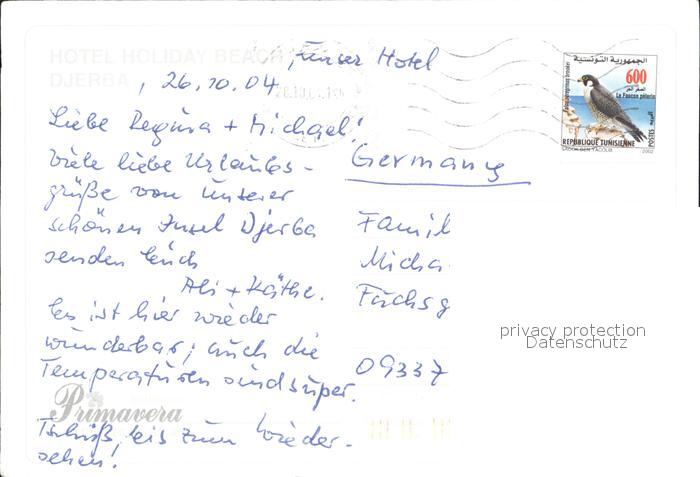 HOTEL HOLIDAY BEACH
DJERBA
, unser Hotel
, 26.10.04
Liebe Regina + Michael!
viele liebe Urlaubs-
grüße von unserer
schönen Insel Djerba
senden Euch
Ali + Käthe.
Es ist hier wieder
wunderbar, auch die
Temperaturen sind super.
Primavera
Tschüß, bis zum Wieder-
sehen!
Germany
Famil
Micha
Fuchsg
09337
privacy protection
Datenschutz
الجمهورية التونسية
600
Le Faucon pèlerin
POSTES
REPUBLIQUE TUNISIENNE
2002